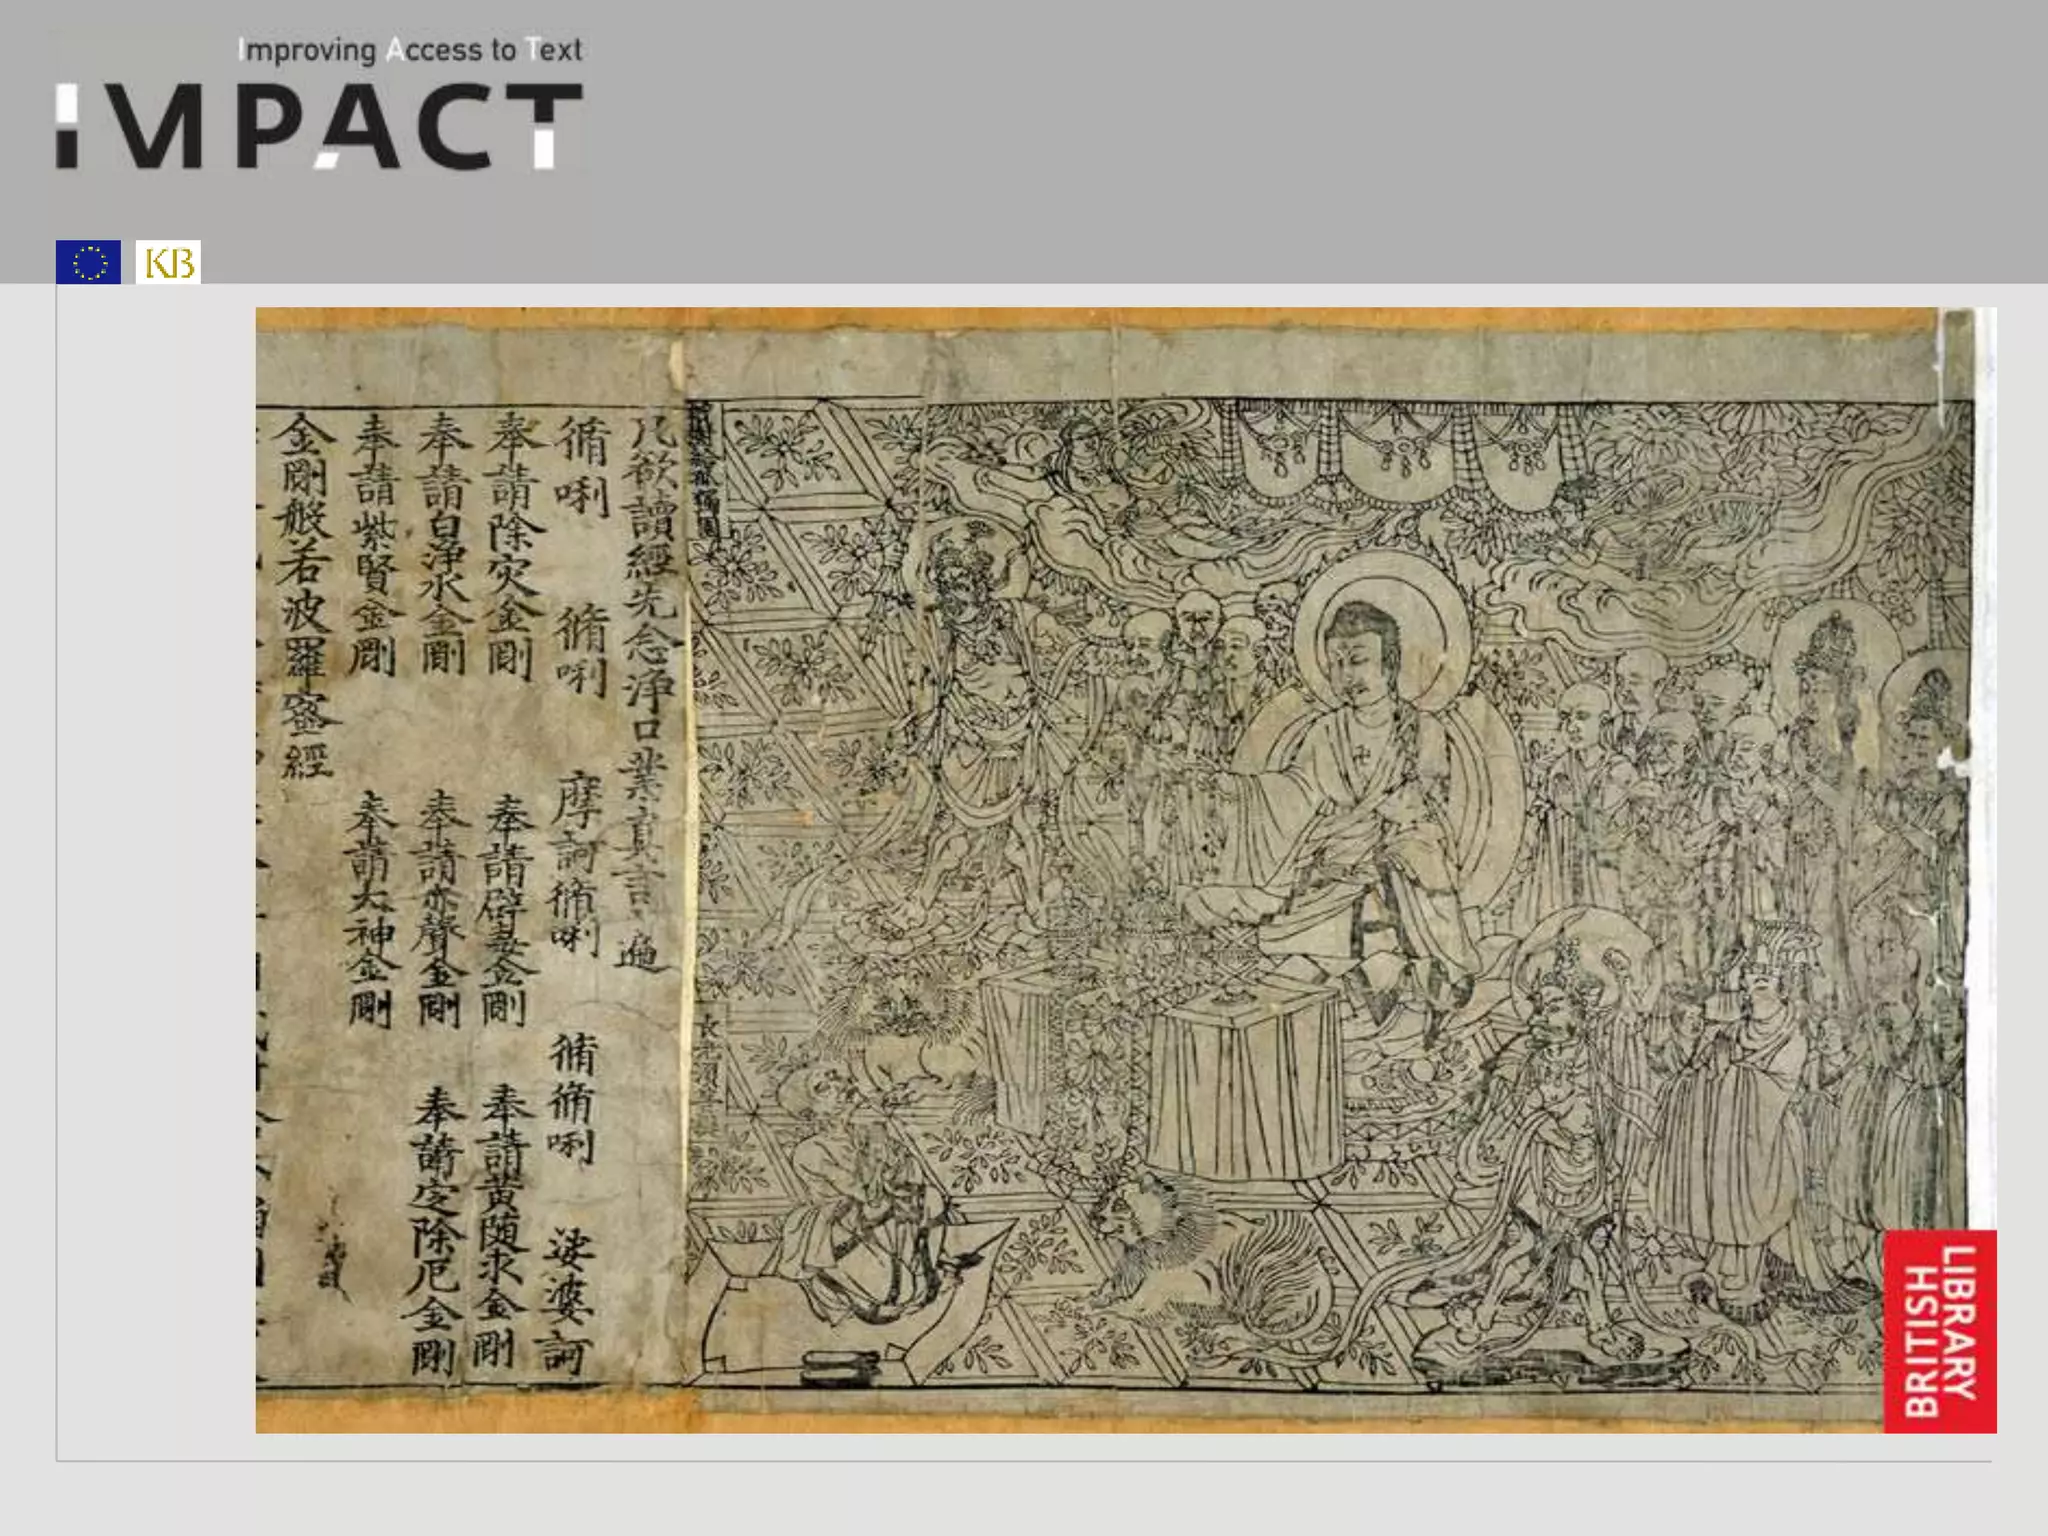 Improving Access to Text
IMPACT
KB
凡欲讀經先念淨口業真言一遍
脩唎 脩唎 摩訶脩唎 脩脩唎 娑婆訶
奉請除灾金剛 奉請辟毒金剛 奉請黃隨求金剛
奉請白淨水金剛 奉請赤聲金剛 奉請定除厄金剛
奉請紫賢金剛 奉請大神金剛
金剛般若波羅蜜經
BRITISH
LIBRARY